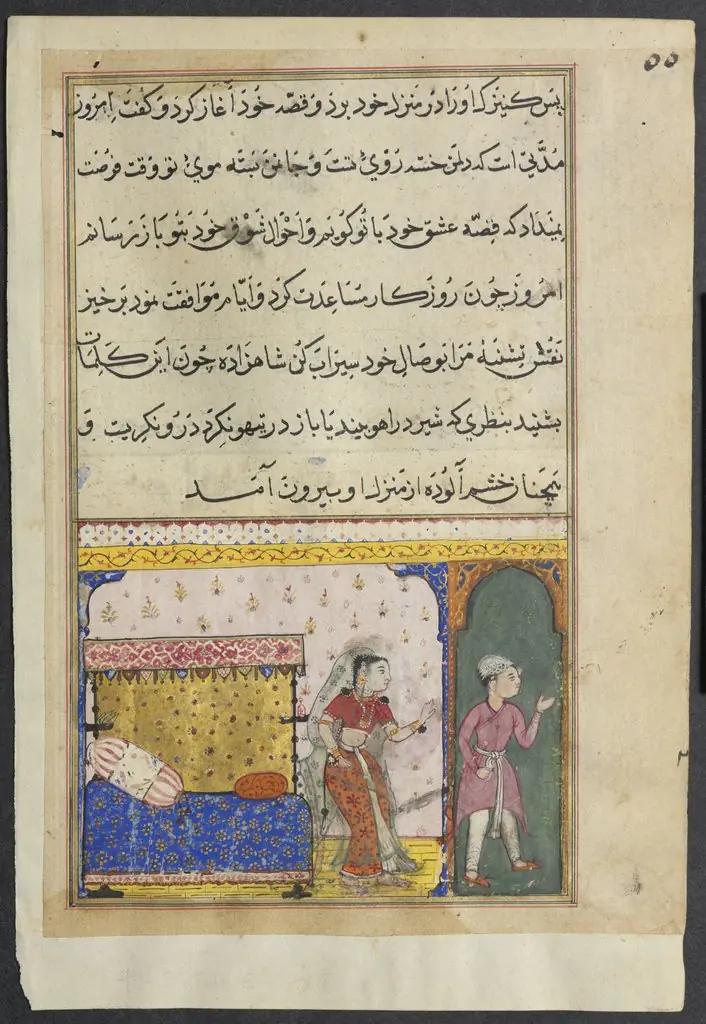 ۵۵
پس کنیزک اورا در منزل خود برد و قصه خود آغاز کرد و گفت امروز
مدتی است که دلمن خسته روی تست و جانمن بسته موی تو وقت فرصت
نمیداد که قصه عشق خود با تو گویم و احوال شوق خود بتو باز رسانم
امروز چون روزکار مساعدت کرد و ایام موافقت نمود برخیز
تشنه مرا بوصال خود سیراب کن شاهزاده چون این کلمات
بشنید بنظری که شیر در اهو بیند یا باز در تیهو نکرد درو نکریست و
همچنان خشم آلوده از منزل او بیرون آمد